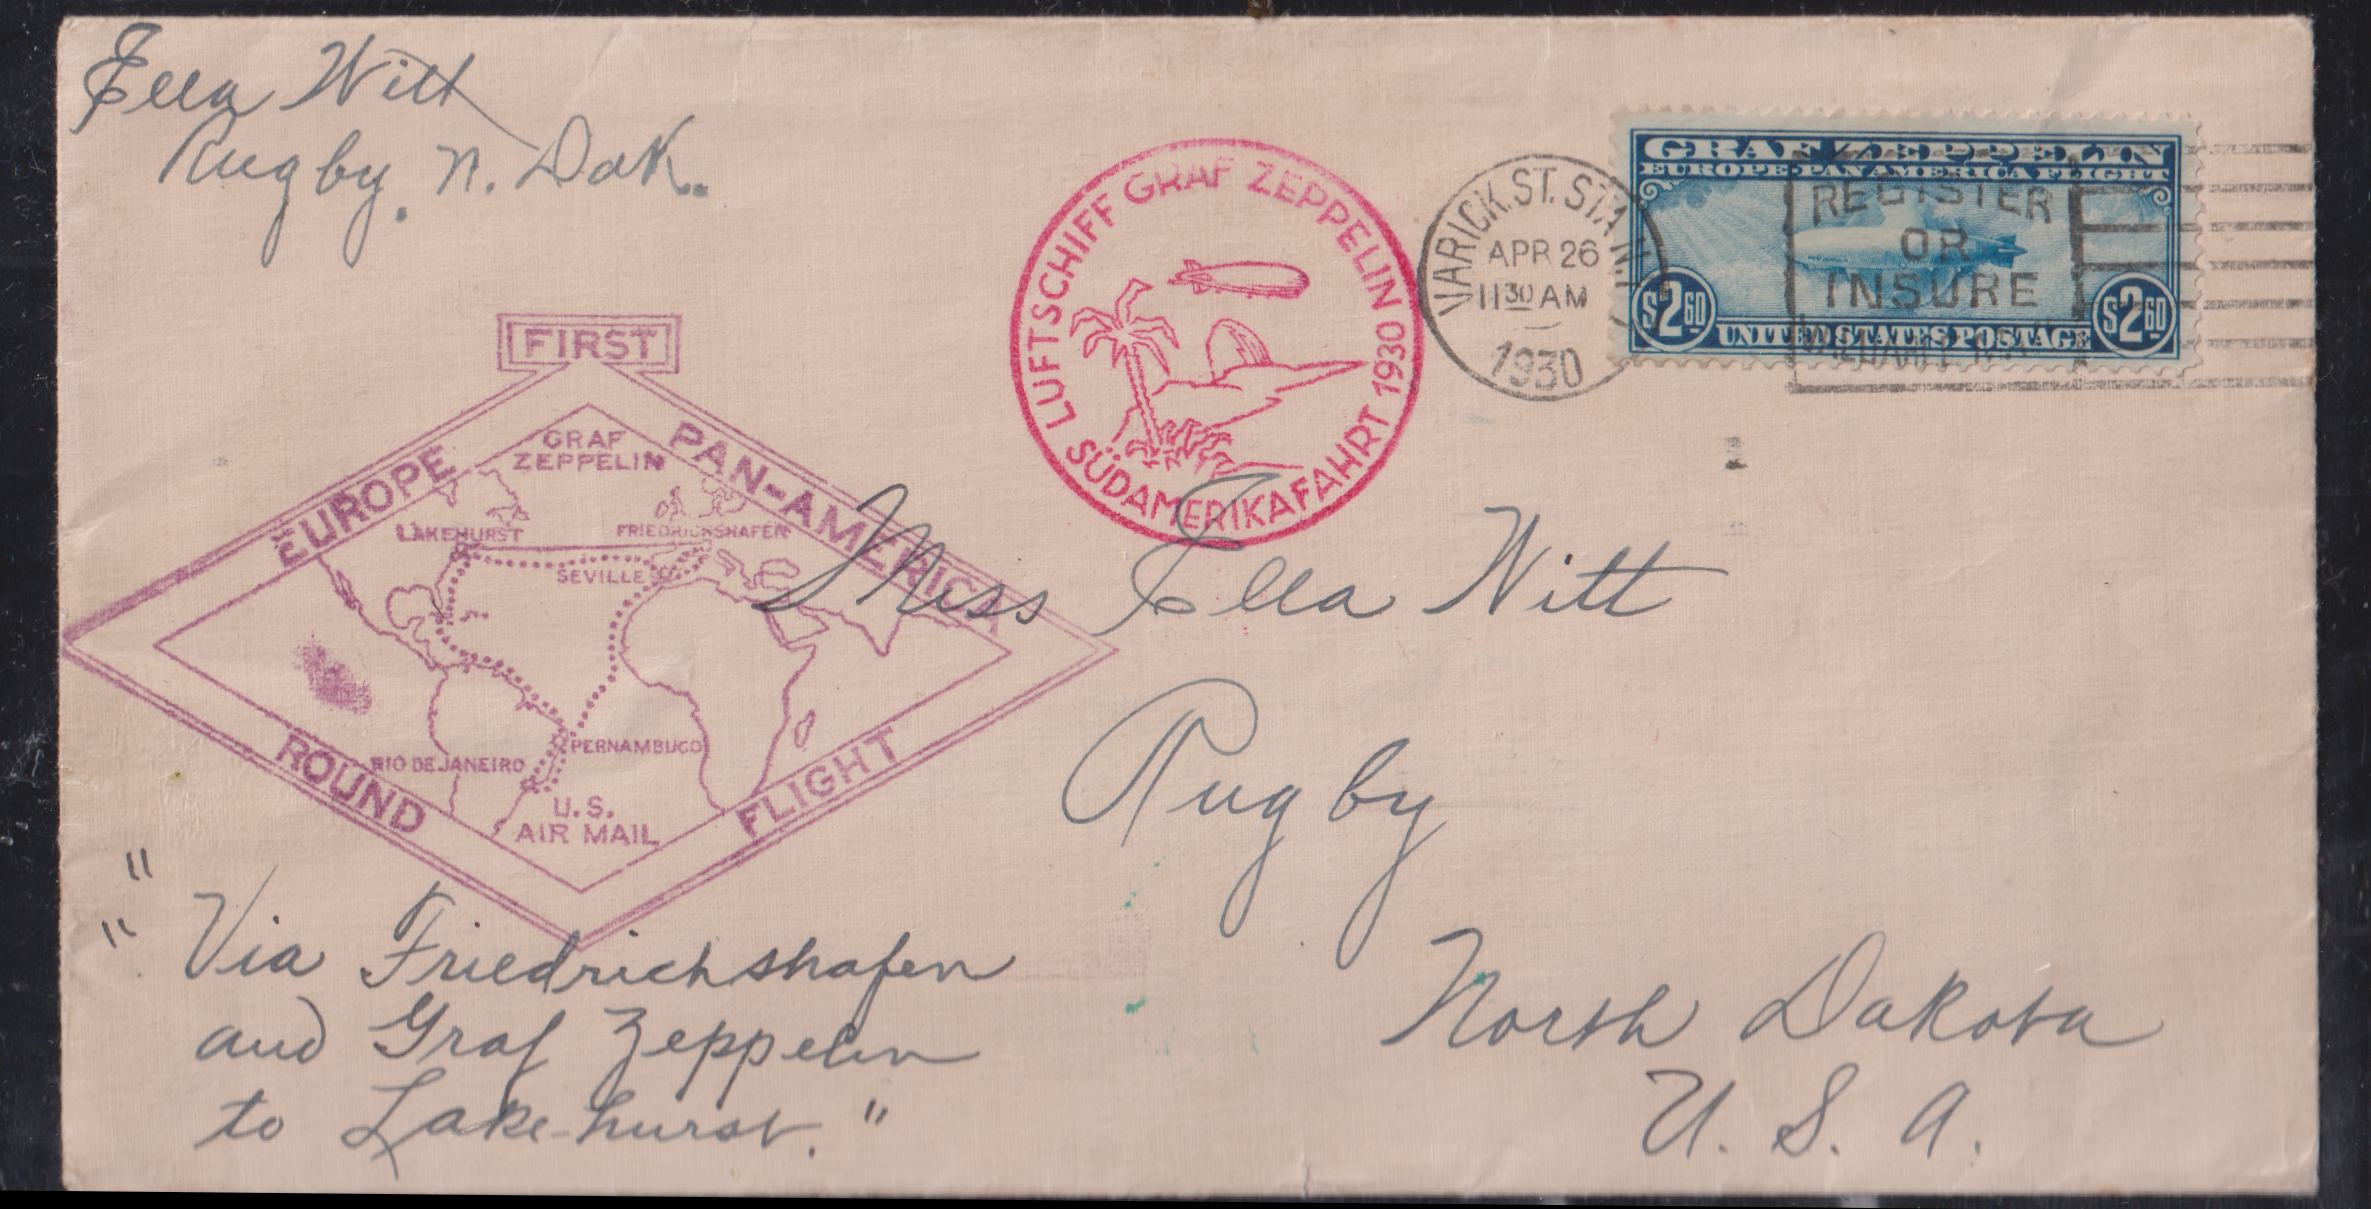 Ella Witt
Rugby, N. Dak.
LUFTSCHIFF GRAF ZEPPELIN
SÜDAMERIKAFAHRT 1930
VARICK. ST. STA. N.Y.
APR 26
11 30 AM
1930
REGISTER
OR
INSURE
GRAF ZEPPELIN
EUROPE-PAN AMERICA FLIGHT
$2 60
$2 60
UNITED STATES POSTAGE
FIRST
EUROPE
PAN-AMERICA
GRAF
ZEPPELIN
LAKEHURST
FRIEDRICHSHAFEN
SEVILLE
PERNAMBUCO
RIO DE JANEIRO
U.S.
AIR MAIL
ROUND
FLIGHT
Miss Ella Witt
Rugby
North Dakota
U. S. A.
"
"Via Friedrichshafen
and Graf Zeppelin
to Lake-hurst."